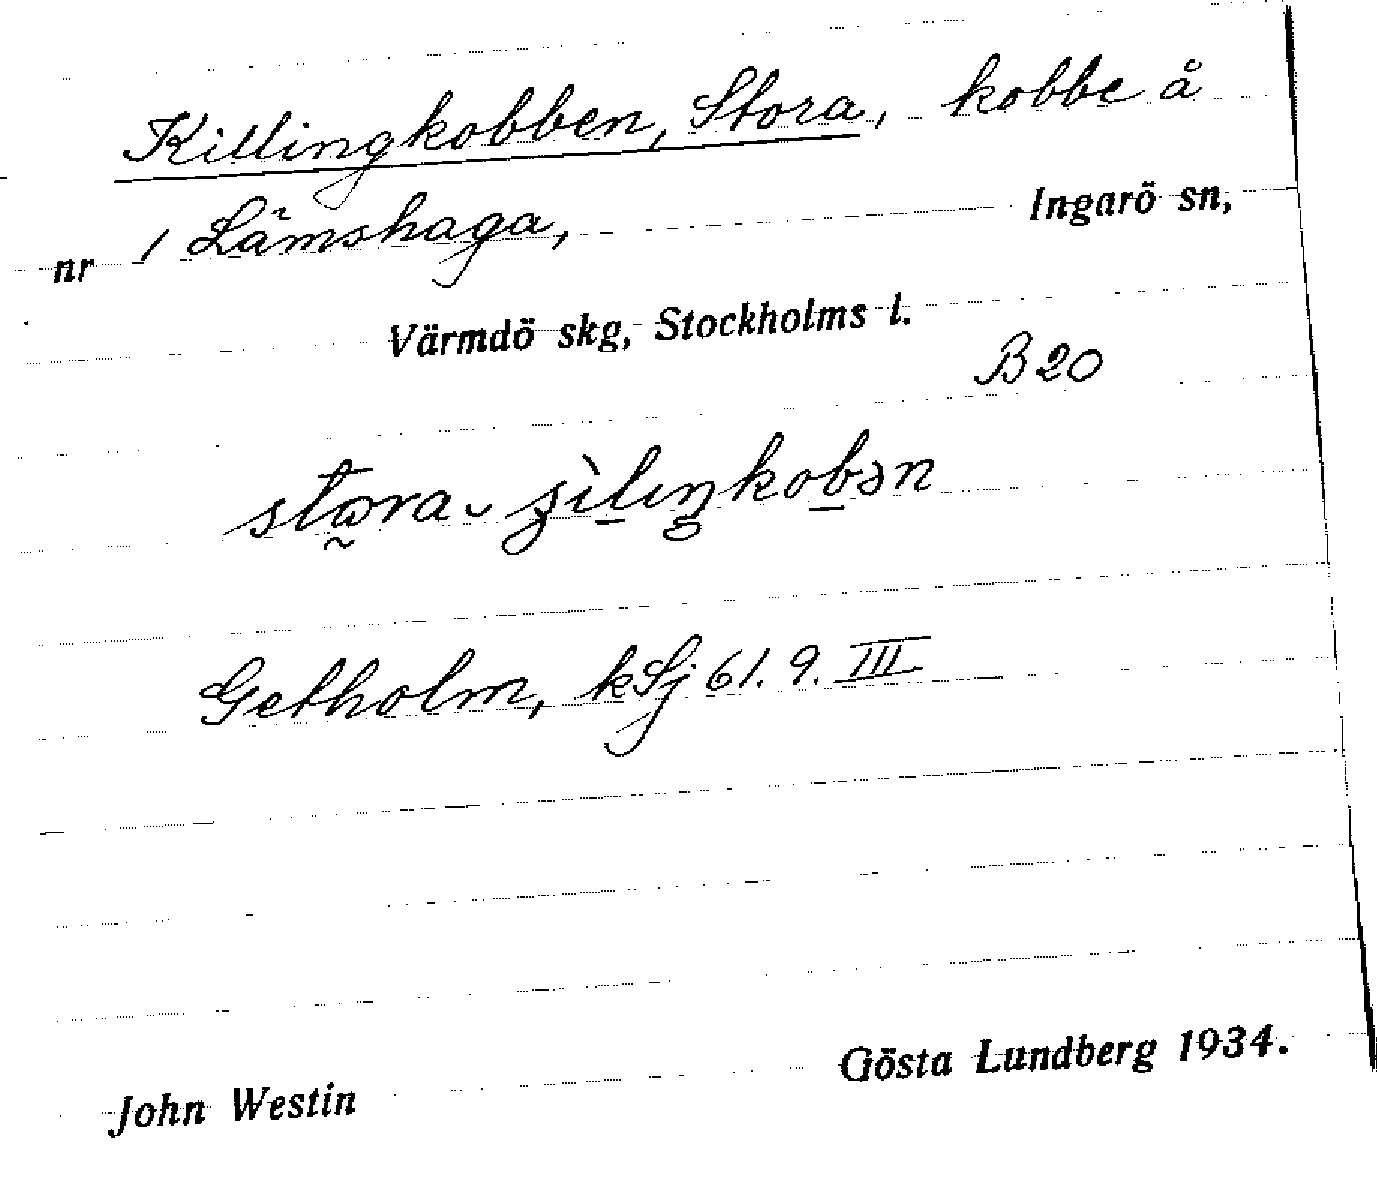 Killingkobben, Stora, kobbe å
nr 1 Lämshaga, Ingarö sn,
Värmdö skg, Stockholms l.
B 20
Getholm, kSj 61. 9. III
John Westin Gösta Lundberg 1934.